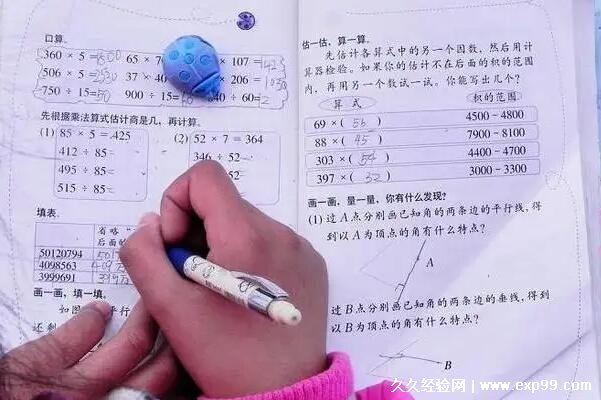 口算。
360 × 5 = 1800 65 × 107 =
506 × 5 = 2530 37 × 40 206 =
750 ÷ 15 = 50 900 ÷ 15 = 840 ÷ 60 =
先根据乘法算式估计商是几，再计算。
(1) 85 × 5 = 425
412 ÷ 85 =
495 ÷ 85 =
515 ÷ 85 =
(2) 52 × 7 = 364
346 ÷ 52
填表。
省略“
后面的
50120794
4098563
3999691
画一画，填一填。
平行
估一估，算一算。
先估计各算式中的另一个因数，然后用计
算器检验。如果你的估计不在后面的积的范围
内，再用另一个数试一试。你能写出几个？
算式 积的范围
69 × ( 56 ) 4500 - 4800
88 × ( 45 ) 7900 - 8100
303 × ( 54 ) 4400 - 4700
397 × ( 32 ) 3000 - 3300
画一画，量一量，你有什么发现？
(1) 过 A 点分别画已知角的两条边的平行线，得
到以 A 为顶点的角有什么特点？
A
过 B 点分别画已知角的两条边的垂线，得到
以 B 为顶点的角有什么特点？
B
久久经验网 www.exp99.com